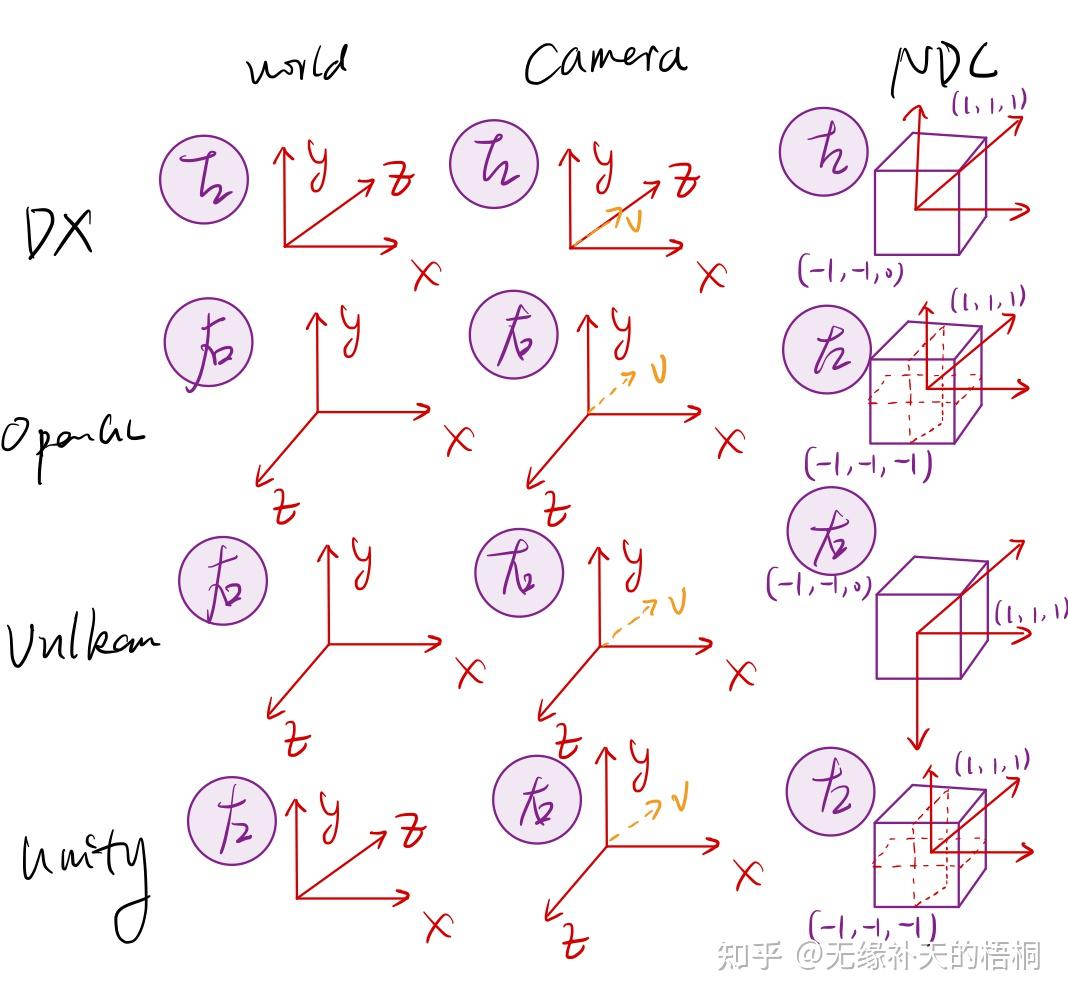 world Camera NDC
左 y z x
左 y z v x
左 (1,1,1)
DX
(-1,-1,0)
右 y x z
右 y v x z
左 (1,1,1)
OpenGL
(-1,-1,-1)
右 y x z
右 y v x z
右
(-1,-1,0)
(1,1,1)
Vulkan
左 y z x
右 y v x z
左 (1,1,1)
unity
(-1,-1,-1)
知乎 @无缘补天的梧桐